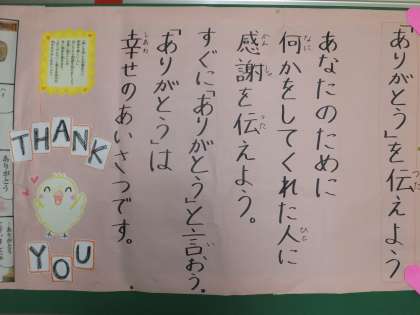 「ありがとう」を伝えよう
あなたのために
何かをしてくれた人に
感謝を伝えよう。
すぐに「ありがとう」と言おう。
「ありがとう」は
幸せのあいさつです。
THANK
YOU